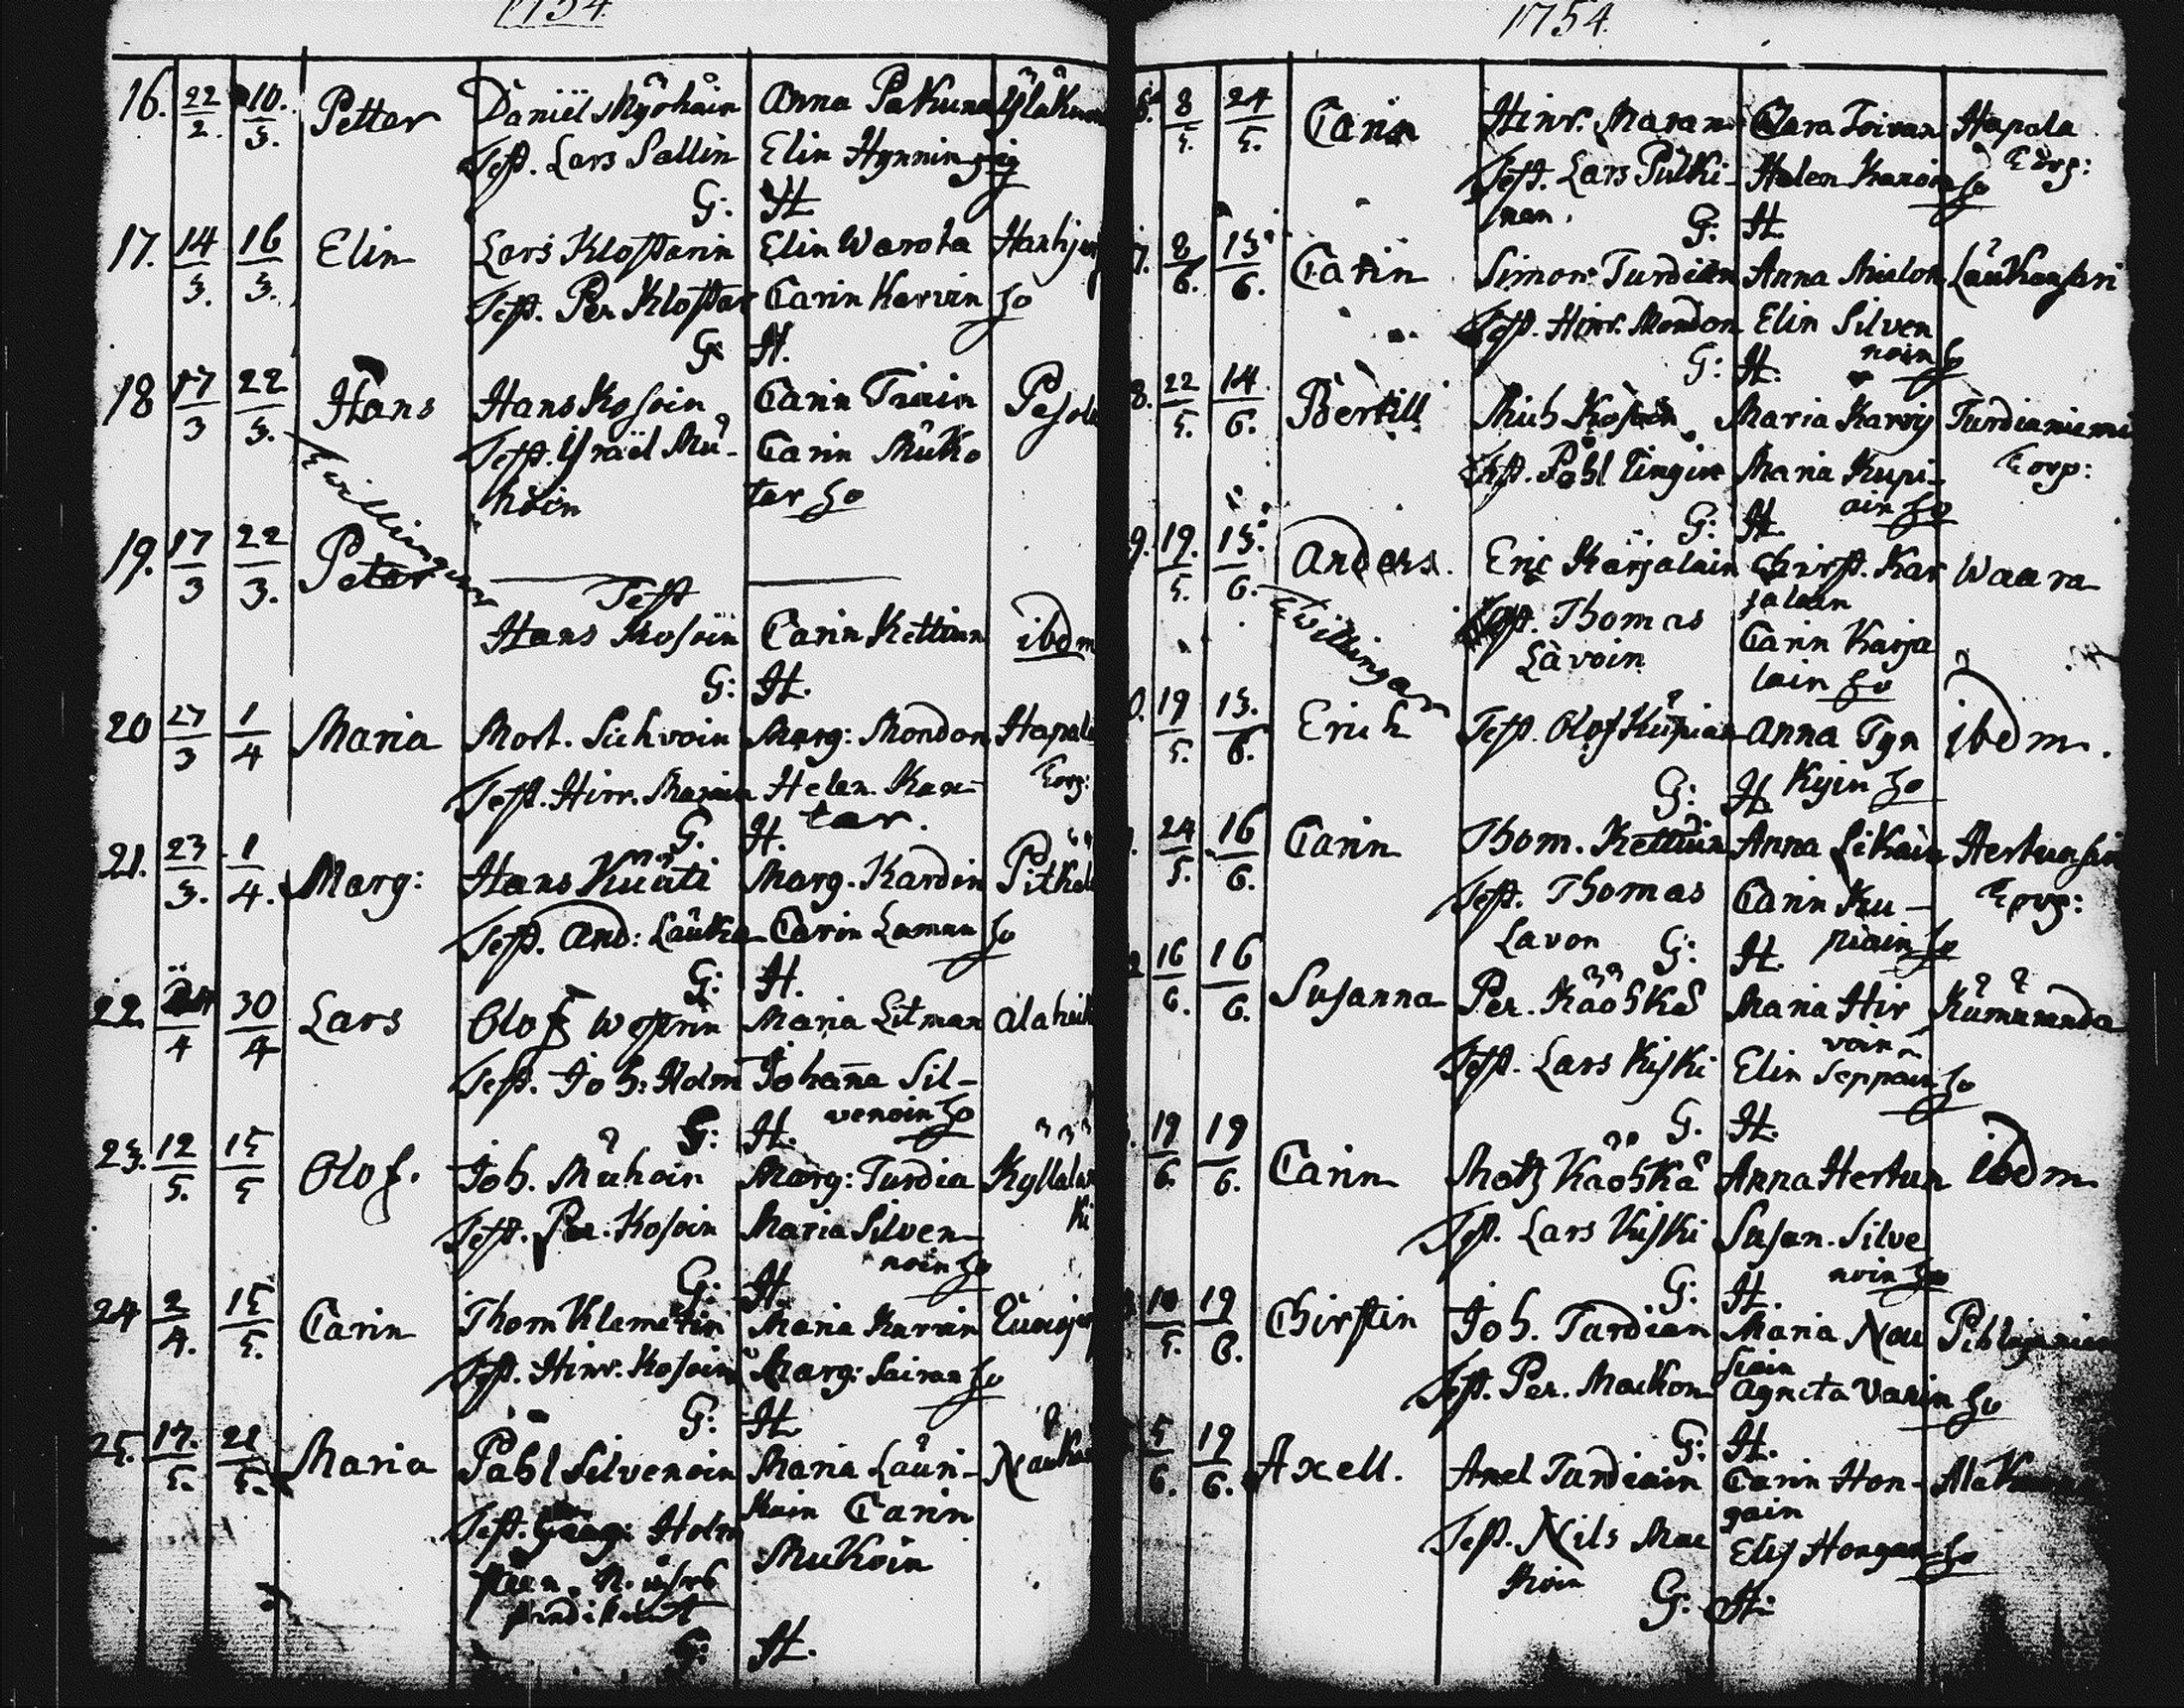 1754.
16. 22/2. 10./3. Petter Daniel Myöhäin Anna Pakuna Yläkun
Test. Lars Sallin Elin Hynnin
G: H.
17. 14/3. 16/3. Elin Lars Klostarin Elin Warola Harhj
Test. Per Klostar Carin Karvin
G: H.
18 17/3 22/3. Hans Hans Kosoin Carin Train Pesol
Test. Israël Mu- Carin Muko
hoin tar
Twillingar
19. 17/3 22/3. Peter
Test
Hans Kosoin Carin Kettun ibdm
G: H.
20 27/3 1/4 Maria Mort. Suhvoin Marg: Mondon Hapal
Test. Hinr. Marain Helen. Kan-
tar. Torp:
G. H.
21. 23/3. 1/4. Marg: Hans Kuuti Marg. Kardin Pitkel
Test. And: Lauka Carin Laman
G: H.
22. 4 30/4 Lars Olof Westrin Maria Litman Alaheik
Test. Joh: Holm Johanna Sil-
venoin
G: H.
23. 12/5. 15/5 Olof. Joh. Muhoin Marg: Turdia Kyllala
Test. Per. Kosoin Maria Silven- ki
noin
G: H.
24 2/4. 15/5. Carin Thom Klemetin Maria Karvin
Test. Hinr. Kosoin Marg: Sairan
G: H.
25. 17./5. 21/5. Maria Påhl Silvenoin Maria Lauri- Nauka
kain Carin
Test. Holm Mukoin
G: H.
1754.
6. 8/5. 24/5. Carin Hinr. Maran Clara Toivan Hapala
Test. Lars Pulki- Helen Kanoin Torp:
nan. G: H.
7. 8/6. 15/6. Catin Simon Turdian Anna Mielon Laukansari
Test. Hinr. Mondon Elin Silven
noin
G: H.
8. 22/5. 14/6. Bertill Mich Kosoin Maria Karvy Turdianiemi
Test. Påhl Tingin Maria Kupi- Torp:
ain
G: H.
9. 19./5. 15./6. Anders. Eric Karjalain Chirst. Kar Waara
jalain
Test. Thomas Carin Karja
Lavoin lain
Twillingar
0. 19/5. 15./6. Erich Test. Olof Kupian Anna Tyn ibdm.
kyin
G: H.
24/5. 16/6. Carin Thom. Kettuin Anna Likain Hertuasin
Test. Thomas Carin Ku- Torp:
Lavon piain
G: H.
16/6. 16/6. Susanna Per. Kaohka Maria Hir Kumuranda
voin
Test. Lars Kiski Elin Seppain
G. H.
19/6. 19/6. Carin Matz Kaohka Anna Hertun ibdm
Test. Lars Kiski Susan. Silve
noin
G: H.
10/5. 19/6. Chirstin Joh. Turdian Maria Nou
siain
Test. Per. Maikon Agneta Vanin
G: H.
5/6. 19/6. Axell. Axel Turdiain Carin Hon- Alak
gain
Test. Nils Mai Elis Hongan
koin
G: H: